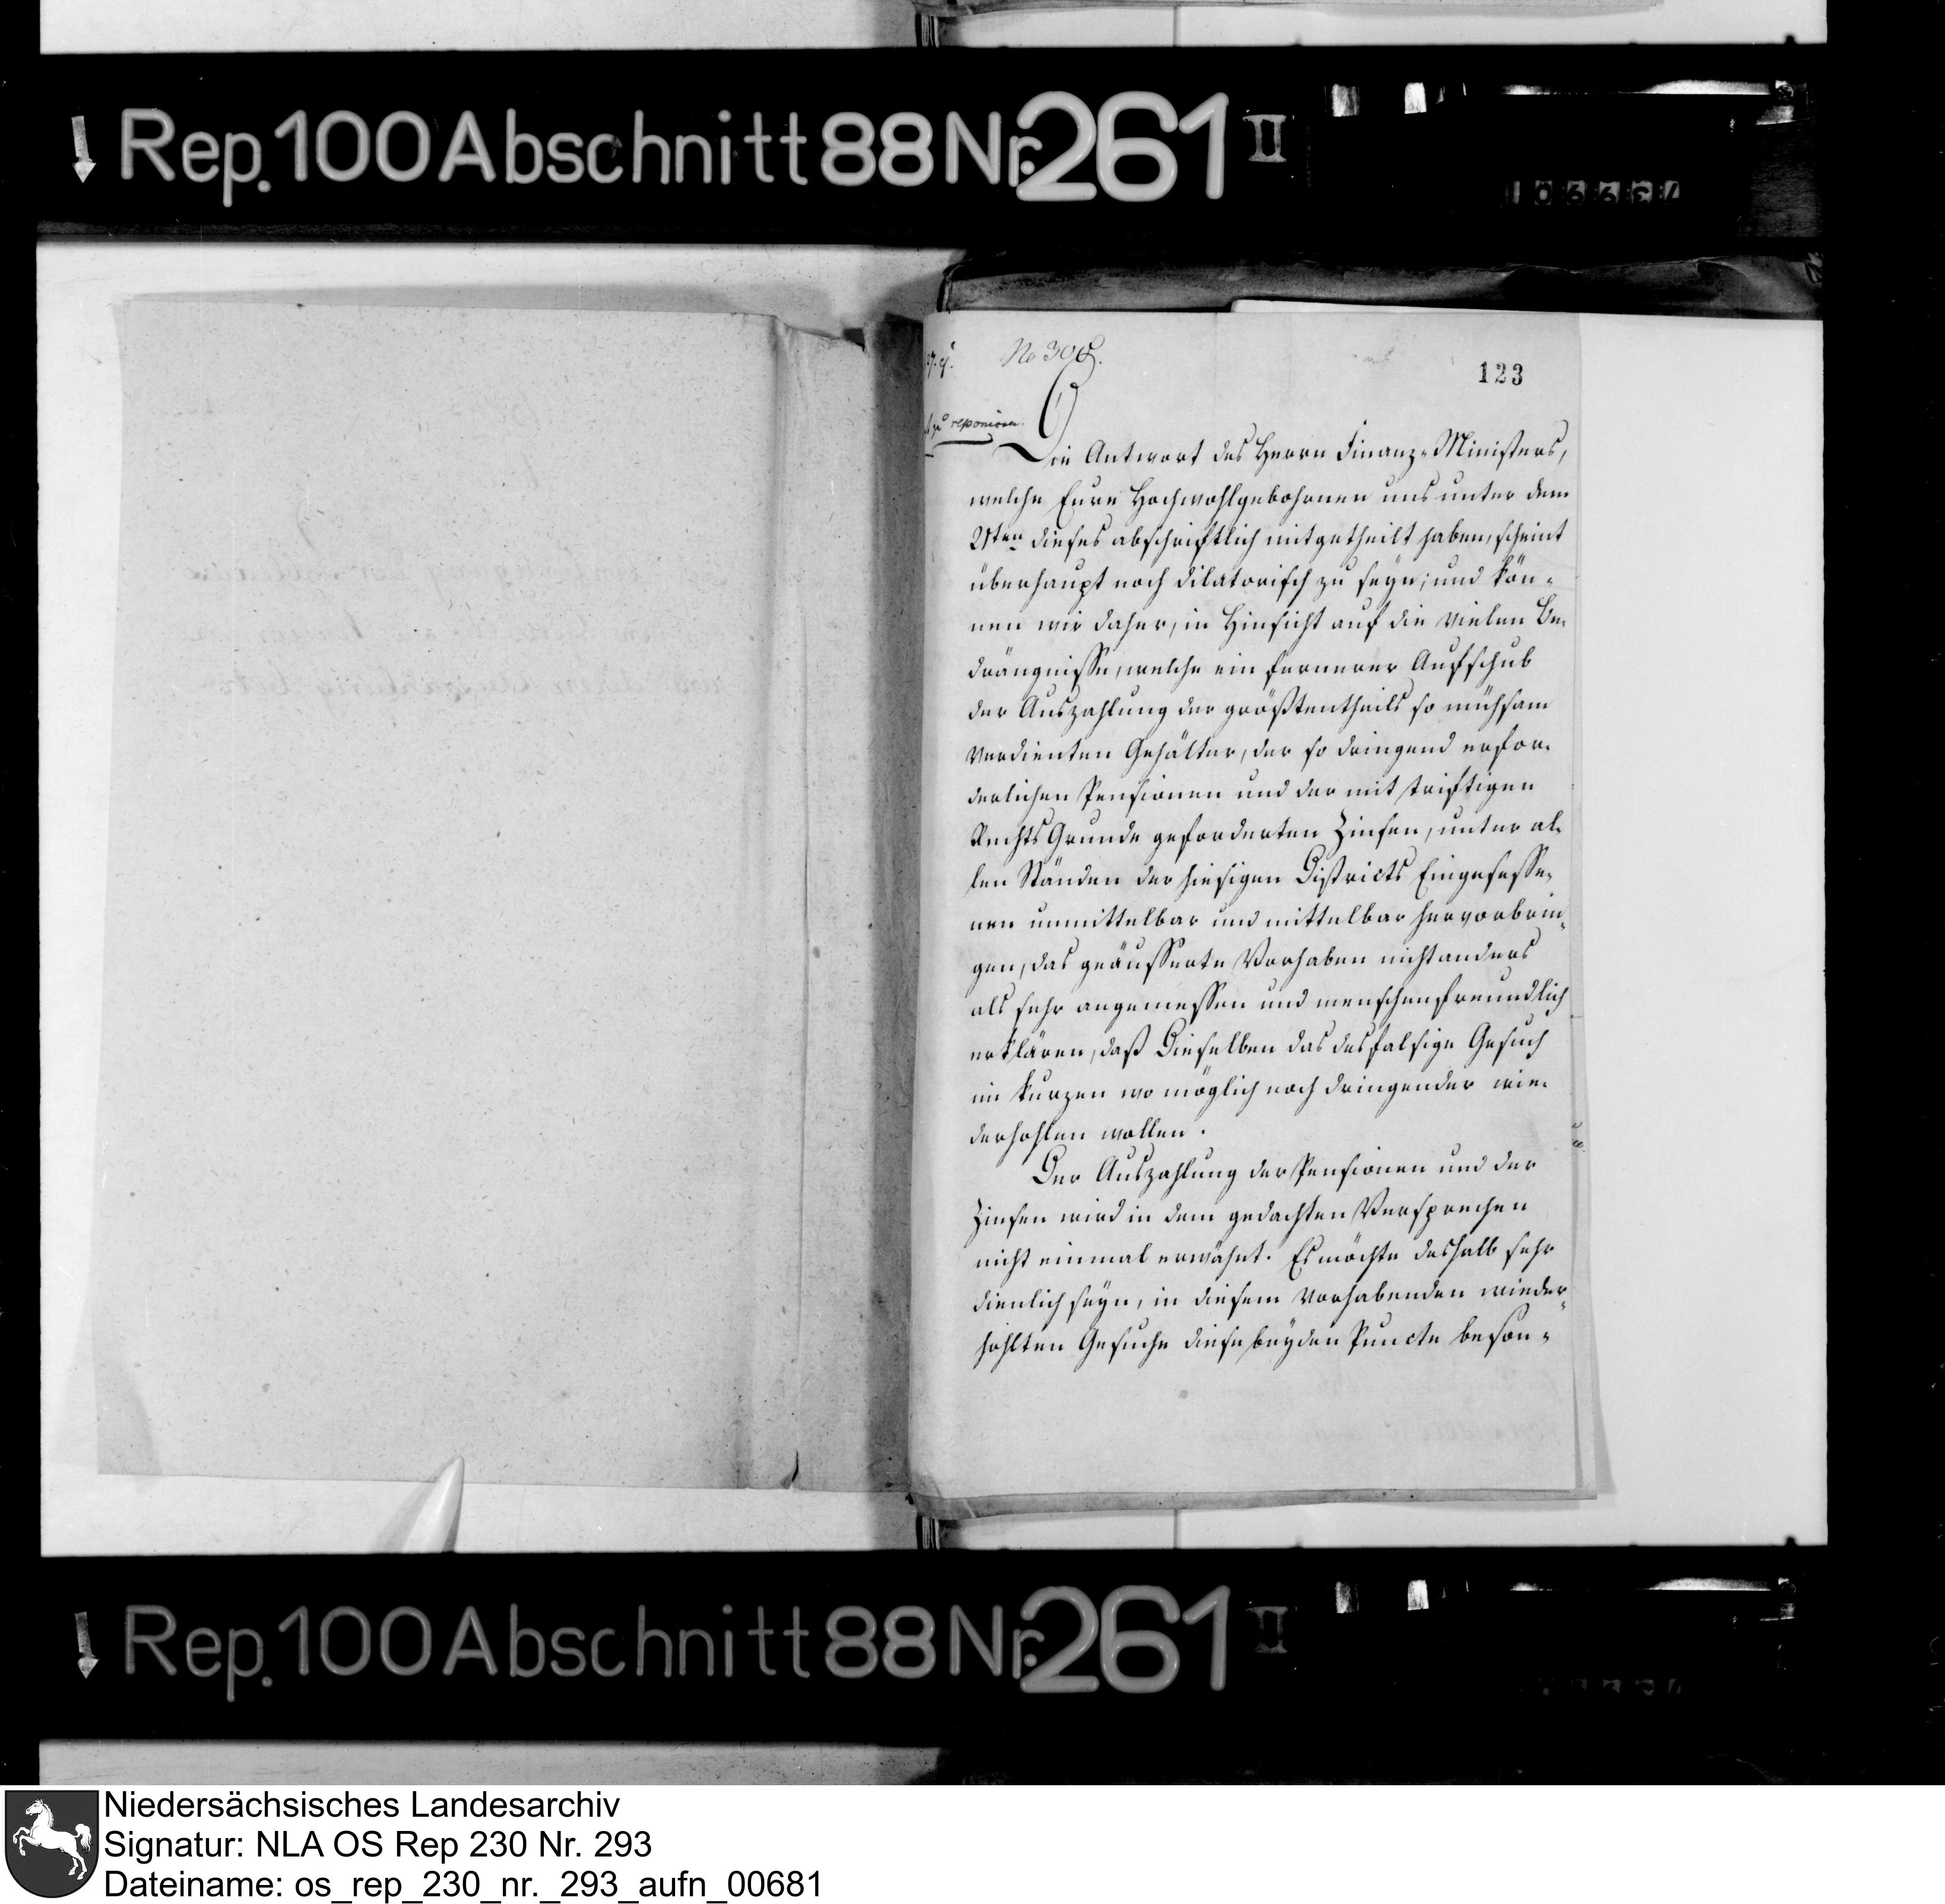 Rep. 100 Abschnitt 88 Nr. 261 II
No 308.
123
reponiren.
Die Antwort des Herrn Finanz-Ministers,
welche Eure Hochwohlgebohrnen uns unter dem
21ten dieses abschriftlich mitgetheilt haben, scheint
überhaupt noch dilatorisch zu seyn; und kön-
nen wir daher, in Hinsicht auf die vielen Be-
drängnisse, welche ein fernerer Aufschub
der Auszahlung der größtentheils so mühsam
verdienten Gehälter, der so dringend erfor-
derlichen Pensionen und der mit triftigen
Rechts Grunde geforderten Zinsen, unter al-
len Ständen der hiesigen Districts Eingesesse-
nen unmittelbar und mittelbar hervorbrin-
gen, das geäusserte Vorhaben nicht anders
als sehr angemessen und menschenfreundlich
erklären, daß Dieselben das desfalsige Gesuch
in kurzen wo möglich noch dringender wie-
derhohlen wollen.
Der Auszahlung der Pensionen und der
Zinsen wird in dem gedachten Versprechen
nicht einmal erwähnt. Es möchte deshalb sehr
dienlich seyn, in diesem vorhabenden wieder-
hohlten Gesuche diese beyden Puncte beson-
Rep. 100 Abschnitt 88 Nr. 261 II
Niedersächsisches Landesarchiv
Signatur: NLA OS Rep 230 Nr. 293
Dateiname: os_rep_230_nr._293_aufn_00681